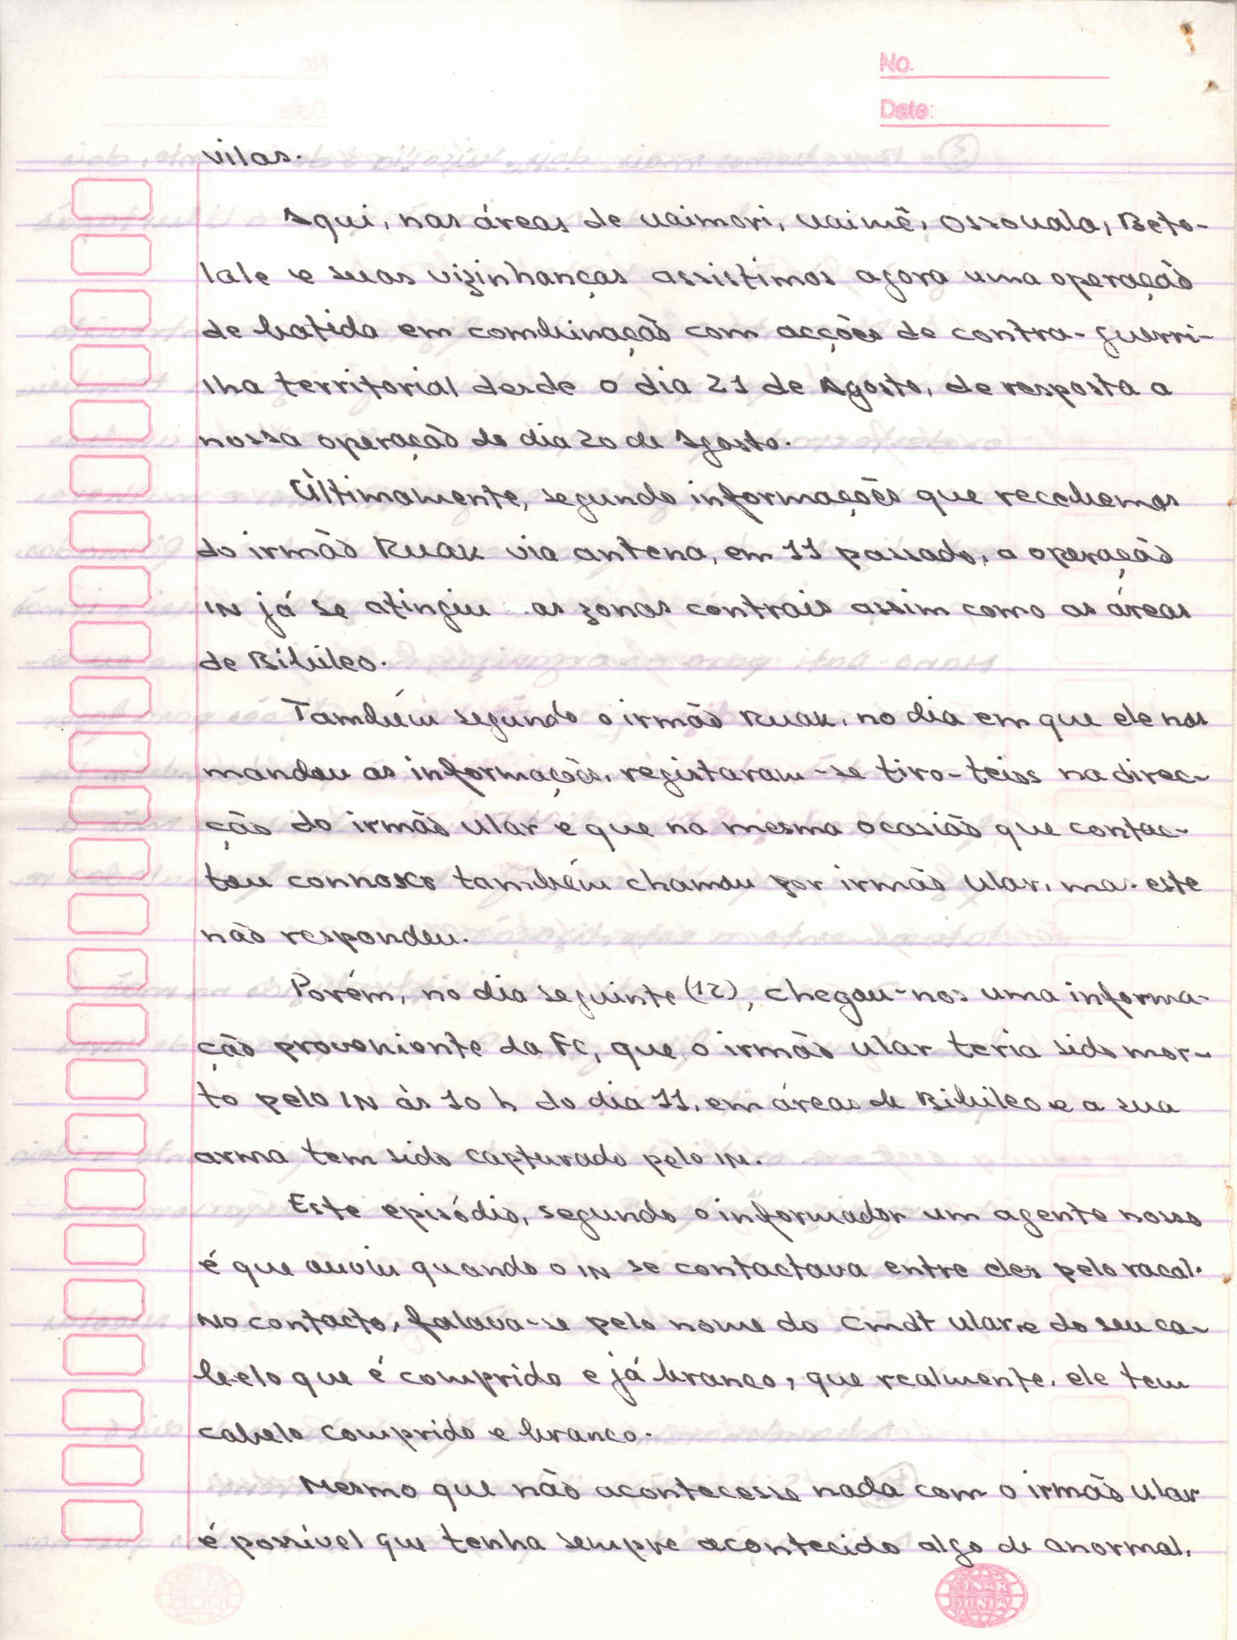 No.
Date:
vilas.
Aqui, nas áreas de Uaimori, Uaimê, Ossouala, Beto-
lale e suas vizinhanças assistimos agora uma operação
de batida em combinação com acções de contra-guerri-
lha territorial desde o dia 21 de Agosto, de resposta a
nossa operação do dia 20 de Agosto.
Últimamente, segundo informações que recebemos
do irmão Ruak via antena, em 11 passado, a operação
IN já se atingiu as zonas centrais assim como as áreas
de Bibileo.
Também segundo o irmão Ruak, no dia em que ele nos
mandou as informações, registaram-se tiro-teios na direc-
ção do irmão Ular e que na mesma ocasião que contac-
tou connosco também chamou por irmão Ular, mas este
não respondeu.
Porém, no dia seguinte (12), chegou-nos uma informa-
ção proveniente da FC, que o irmão Ular teria sido mor-
to pelo IN às 10 h do dia 11, em áreas de Bibileo e a sua
arma tem sido capturado pelo IN.
Este episódio, segundo o informador um agente nosso
é que ouviu quando o IN se contactava entre eles pelo racal.
No contacto, falava-se pelo nome do Cmdt Ular e do seu ca-
belo que é comprido e já branco, que realmente, ele tem
cabelo comprido e branco.
Mesmo que não acontecesse nada com o irmão Ular
é possível que tenha sempre acontecido algo de anormal.